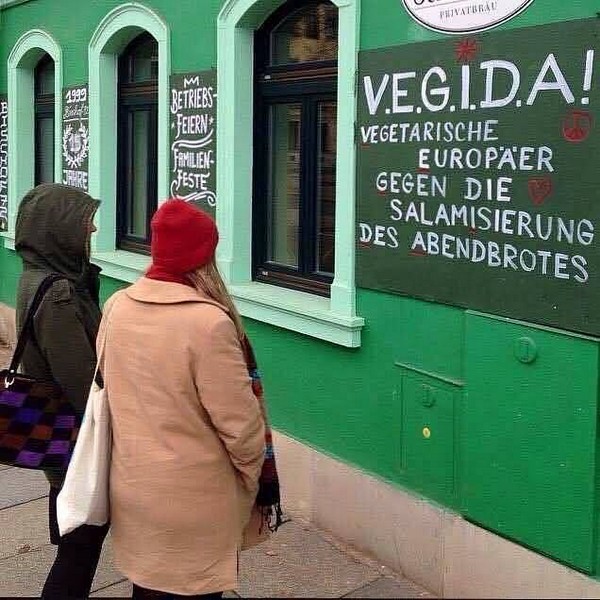 PRIVATBRÄU
V.E.G.I.D.A!
VEGETARISCHE
EUROPÄER
GEGEN DIE
SALAMISIERUNG
DES ABENDBROTES
BETRIEBS-
FEIERN
FAMILIEN-
FESTE
1999
15
JAHRE